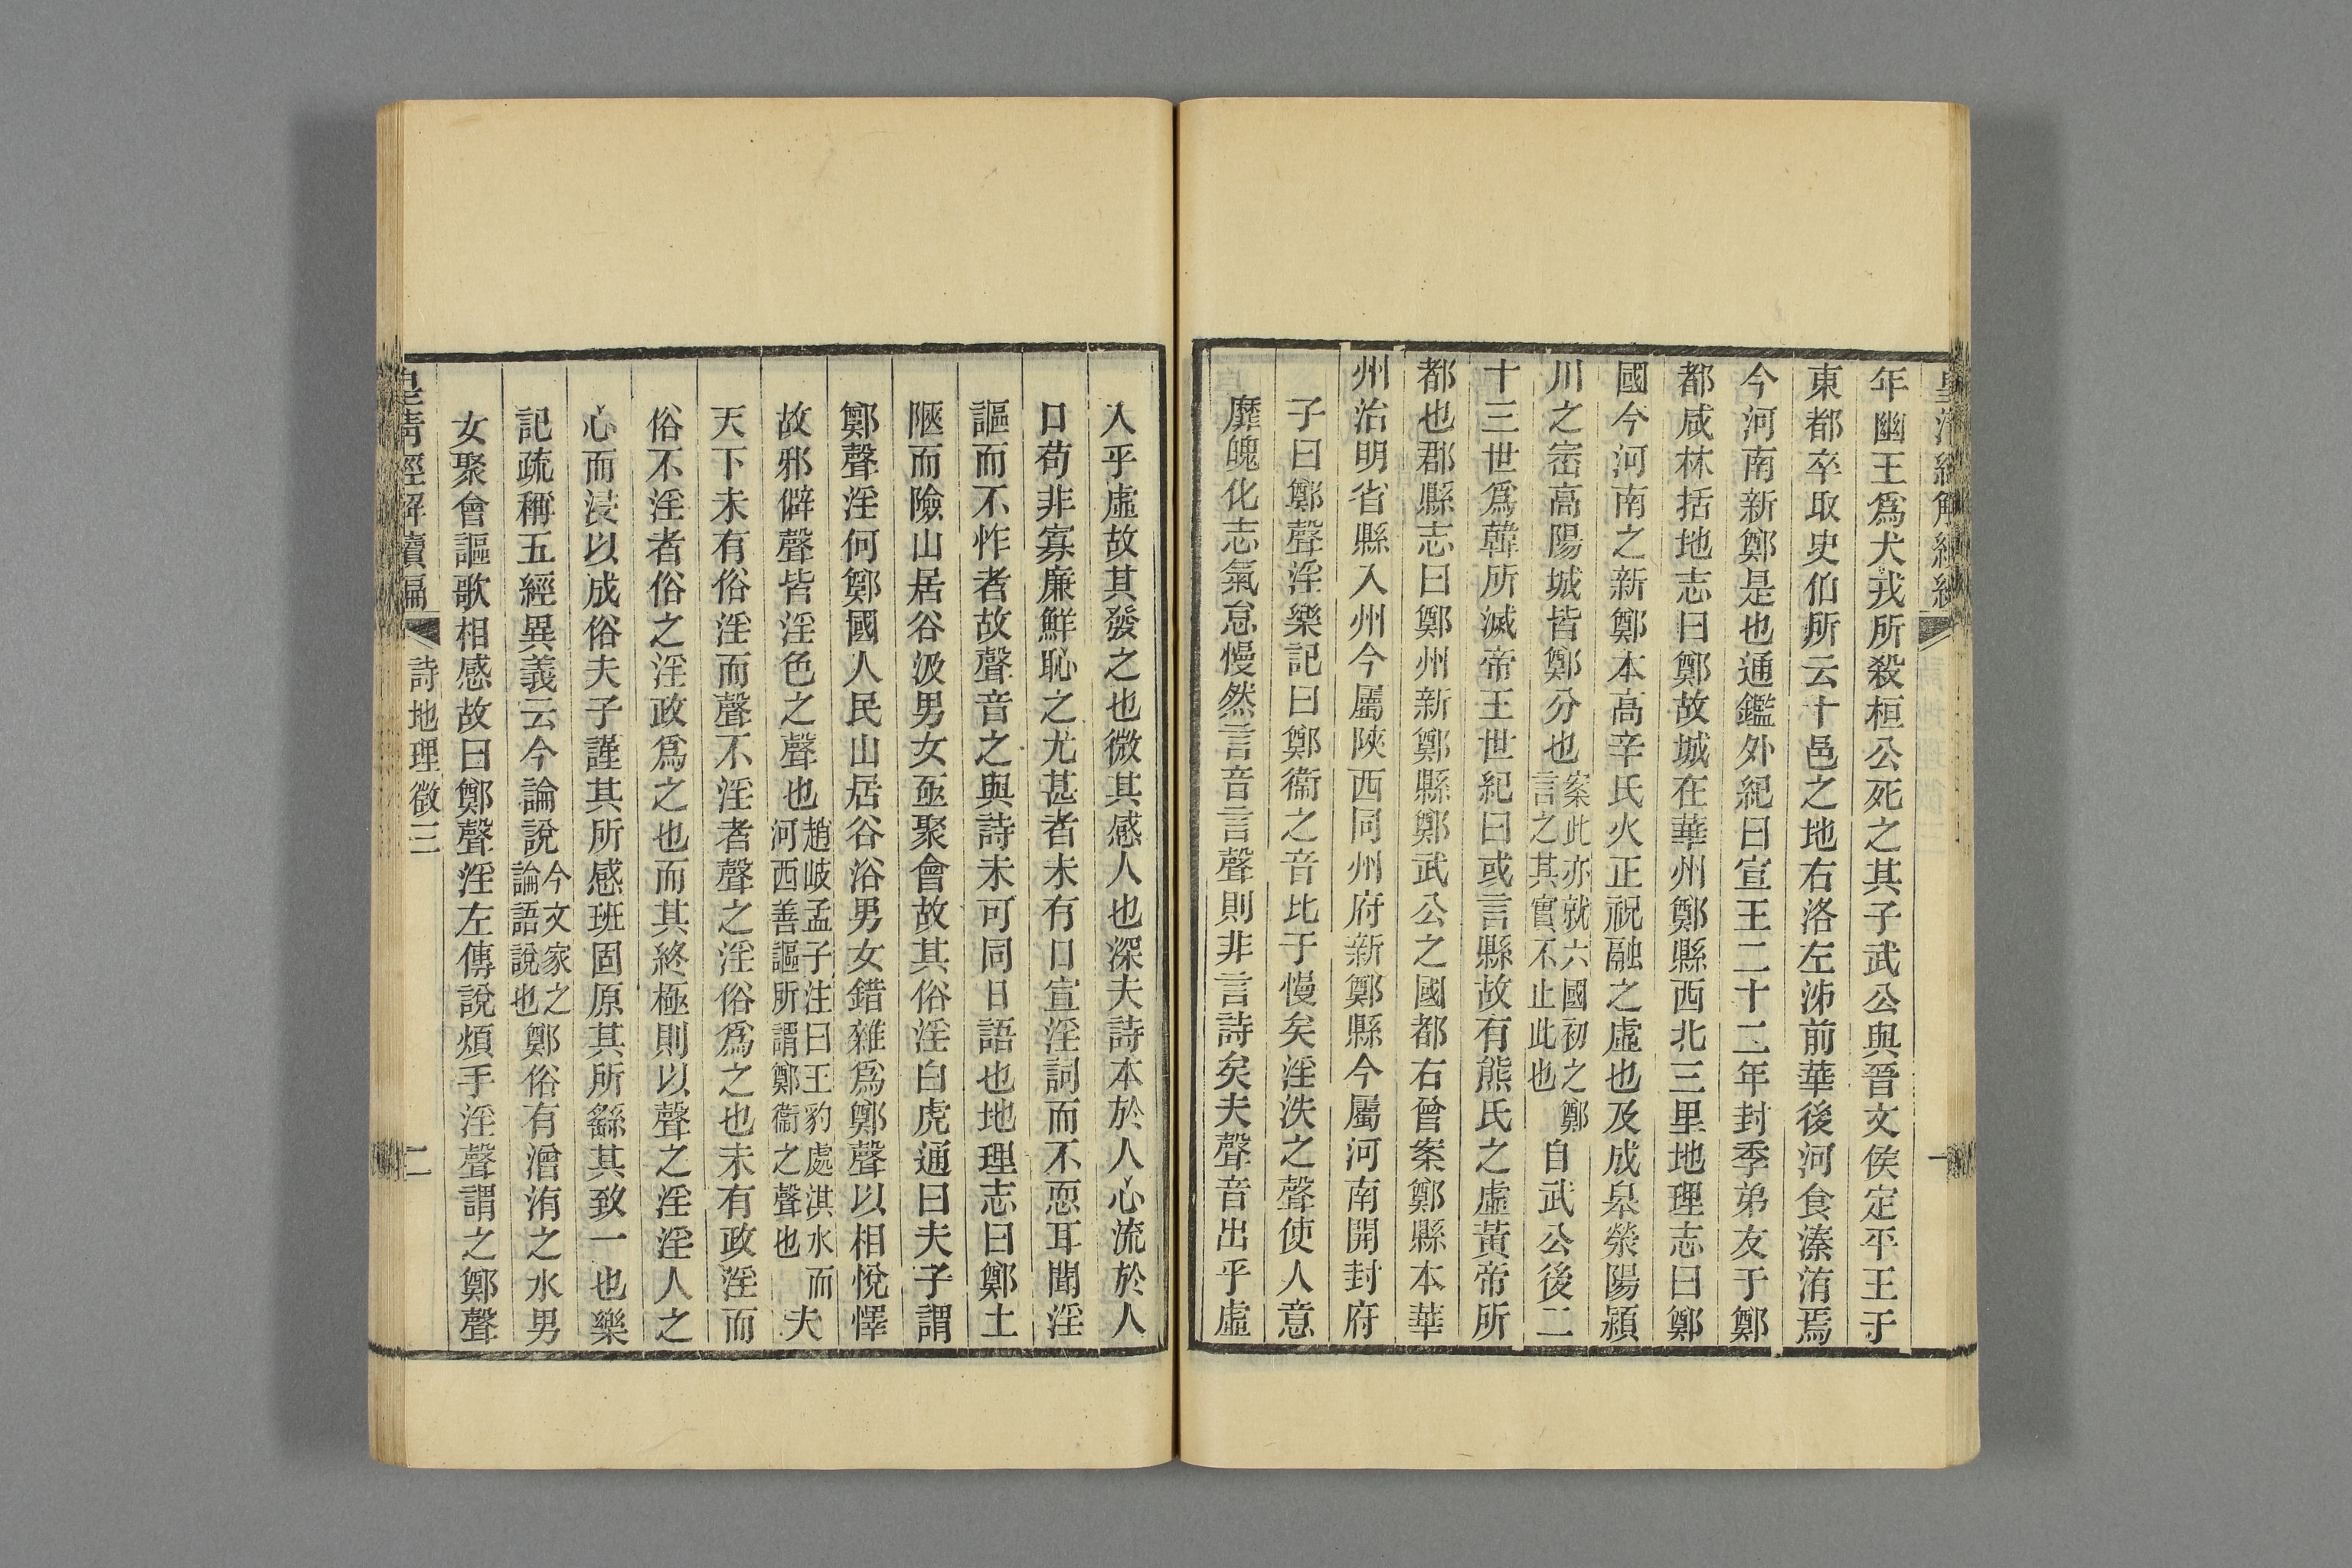 年幽王爲犬戎所殺桓公死之其子武公與晉文侯定平王于
東都卒取史伯所云十邑之地右洛左泲前華後河食溱洧焉
今河南新鄭是也通鑑外紀曰宣王二十二年封季弟友于鄭
都咸林括地志曰鄭故城在華州鄭縣西北三里地理志曰鄭
國今河南之新鄭本高辛氏火正祝融之虛也及成皐滎陽潁
川之崈高陽城皆鄭分也案此亦就六國初之鄭言之其實不止此也自武公後二
十三世爲韓所滅帝王世紀曰或言縣故有熊氏之虛黃帝所
都也郡縣志曰鄭州新鄭縣鄭武公之國都右曾案鄭縣本華
州治明省縣入州今屬陝西同州府新鄭縣今屬河南開封府
子曰鄭聲淫樂記曰鄭衞之音比于慢矣淫泆之聲使人意
靡魄化志氣怠慢然言音言聲則非言詩矣夫聲音出乎虛
入乎虛故其發之也微其感人也深夫詩本於人心流於人
口苟非寡廉鮮恥之尤甚者未有口宣淫詞而不恧耳聞淫
謳而不怍者故聲音之與詩未可同日語也地理志曰鄭土
陿而險山居谷汲男女亟聚會故其俗淫白虎通曰夫子謂
鄭聲淫何鄭國人民山居谷浴男女錯雜爲鄭聲以相悅懌
故邪僻聲皆淫色之聲也趙岐孟子注曰王豹處淇水而河西善謳所謂鄭衞之聲也夫
天下未有俗淫而聲不淫者聲之淫俗爲之也未有政淫而
俗不淫者俗之淫政爲之也而其終極則以聲之淫淫人之
心而浸以成俗夫子謹其所感班固原其所繇其致一也樂
記疏稱五經異義云今論說今文家之論語說也鄭俗有溱洧之水男
女聚會謳歌相感故曰鄭聲淫左傳說煩手淫聲謂之鄭聲
皇清經解續編
詩地理徵三
二